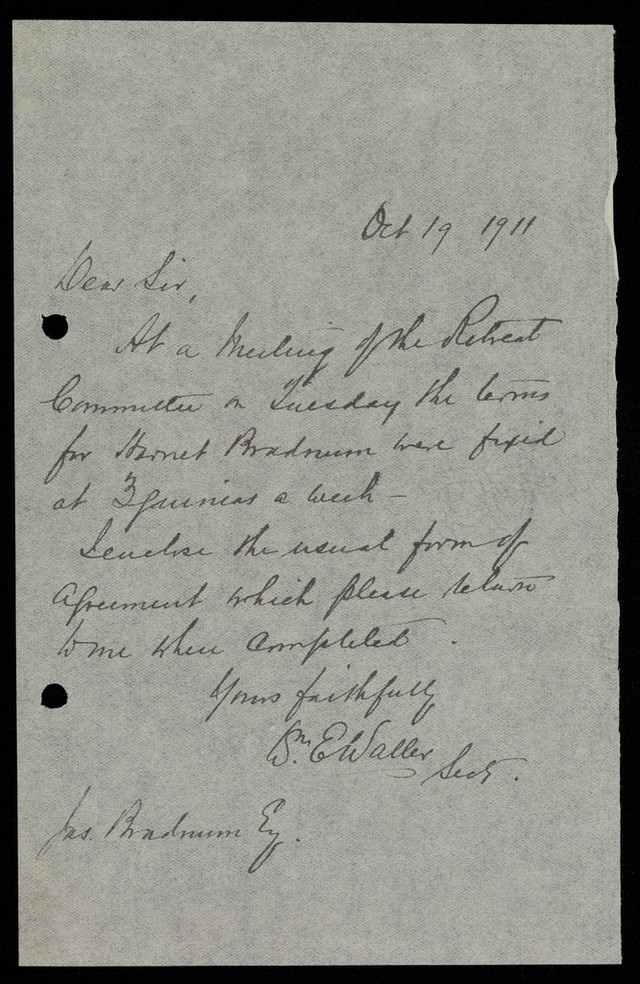 Oct 19 1911
Dear Sir,
At a Meeting of the Retreat
Committee on Tuesday the terms
for Harriet Bradnum were fixed
at 3 guineas a week –
I enclose the usual form of
Agreement which please return
to me when completed.
Yours faithfully
Wm. E Waller Secty.
Jas. Bradnum Esq.